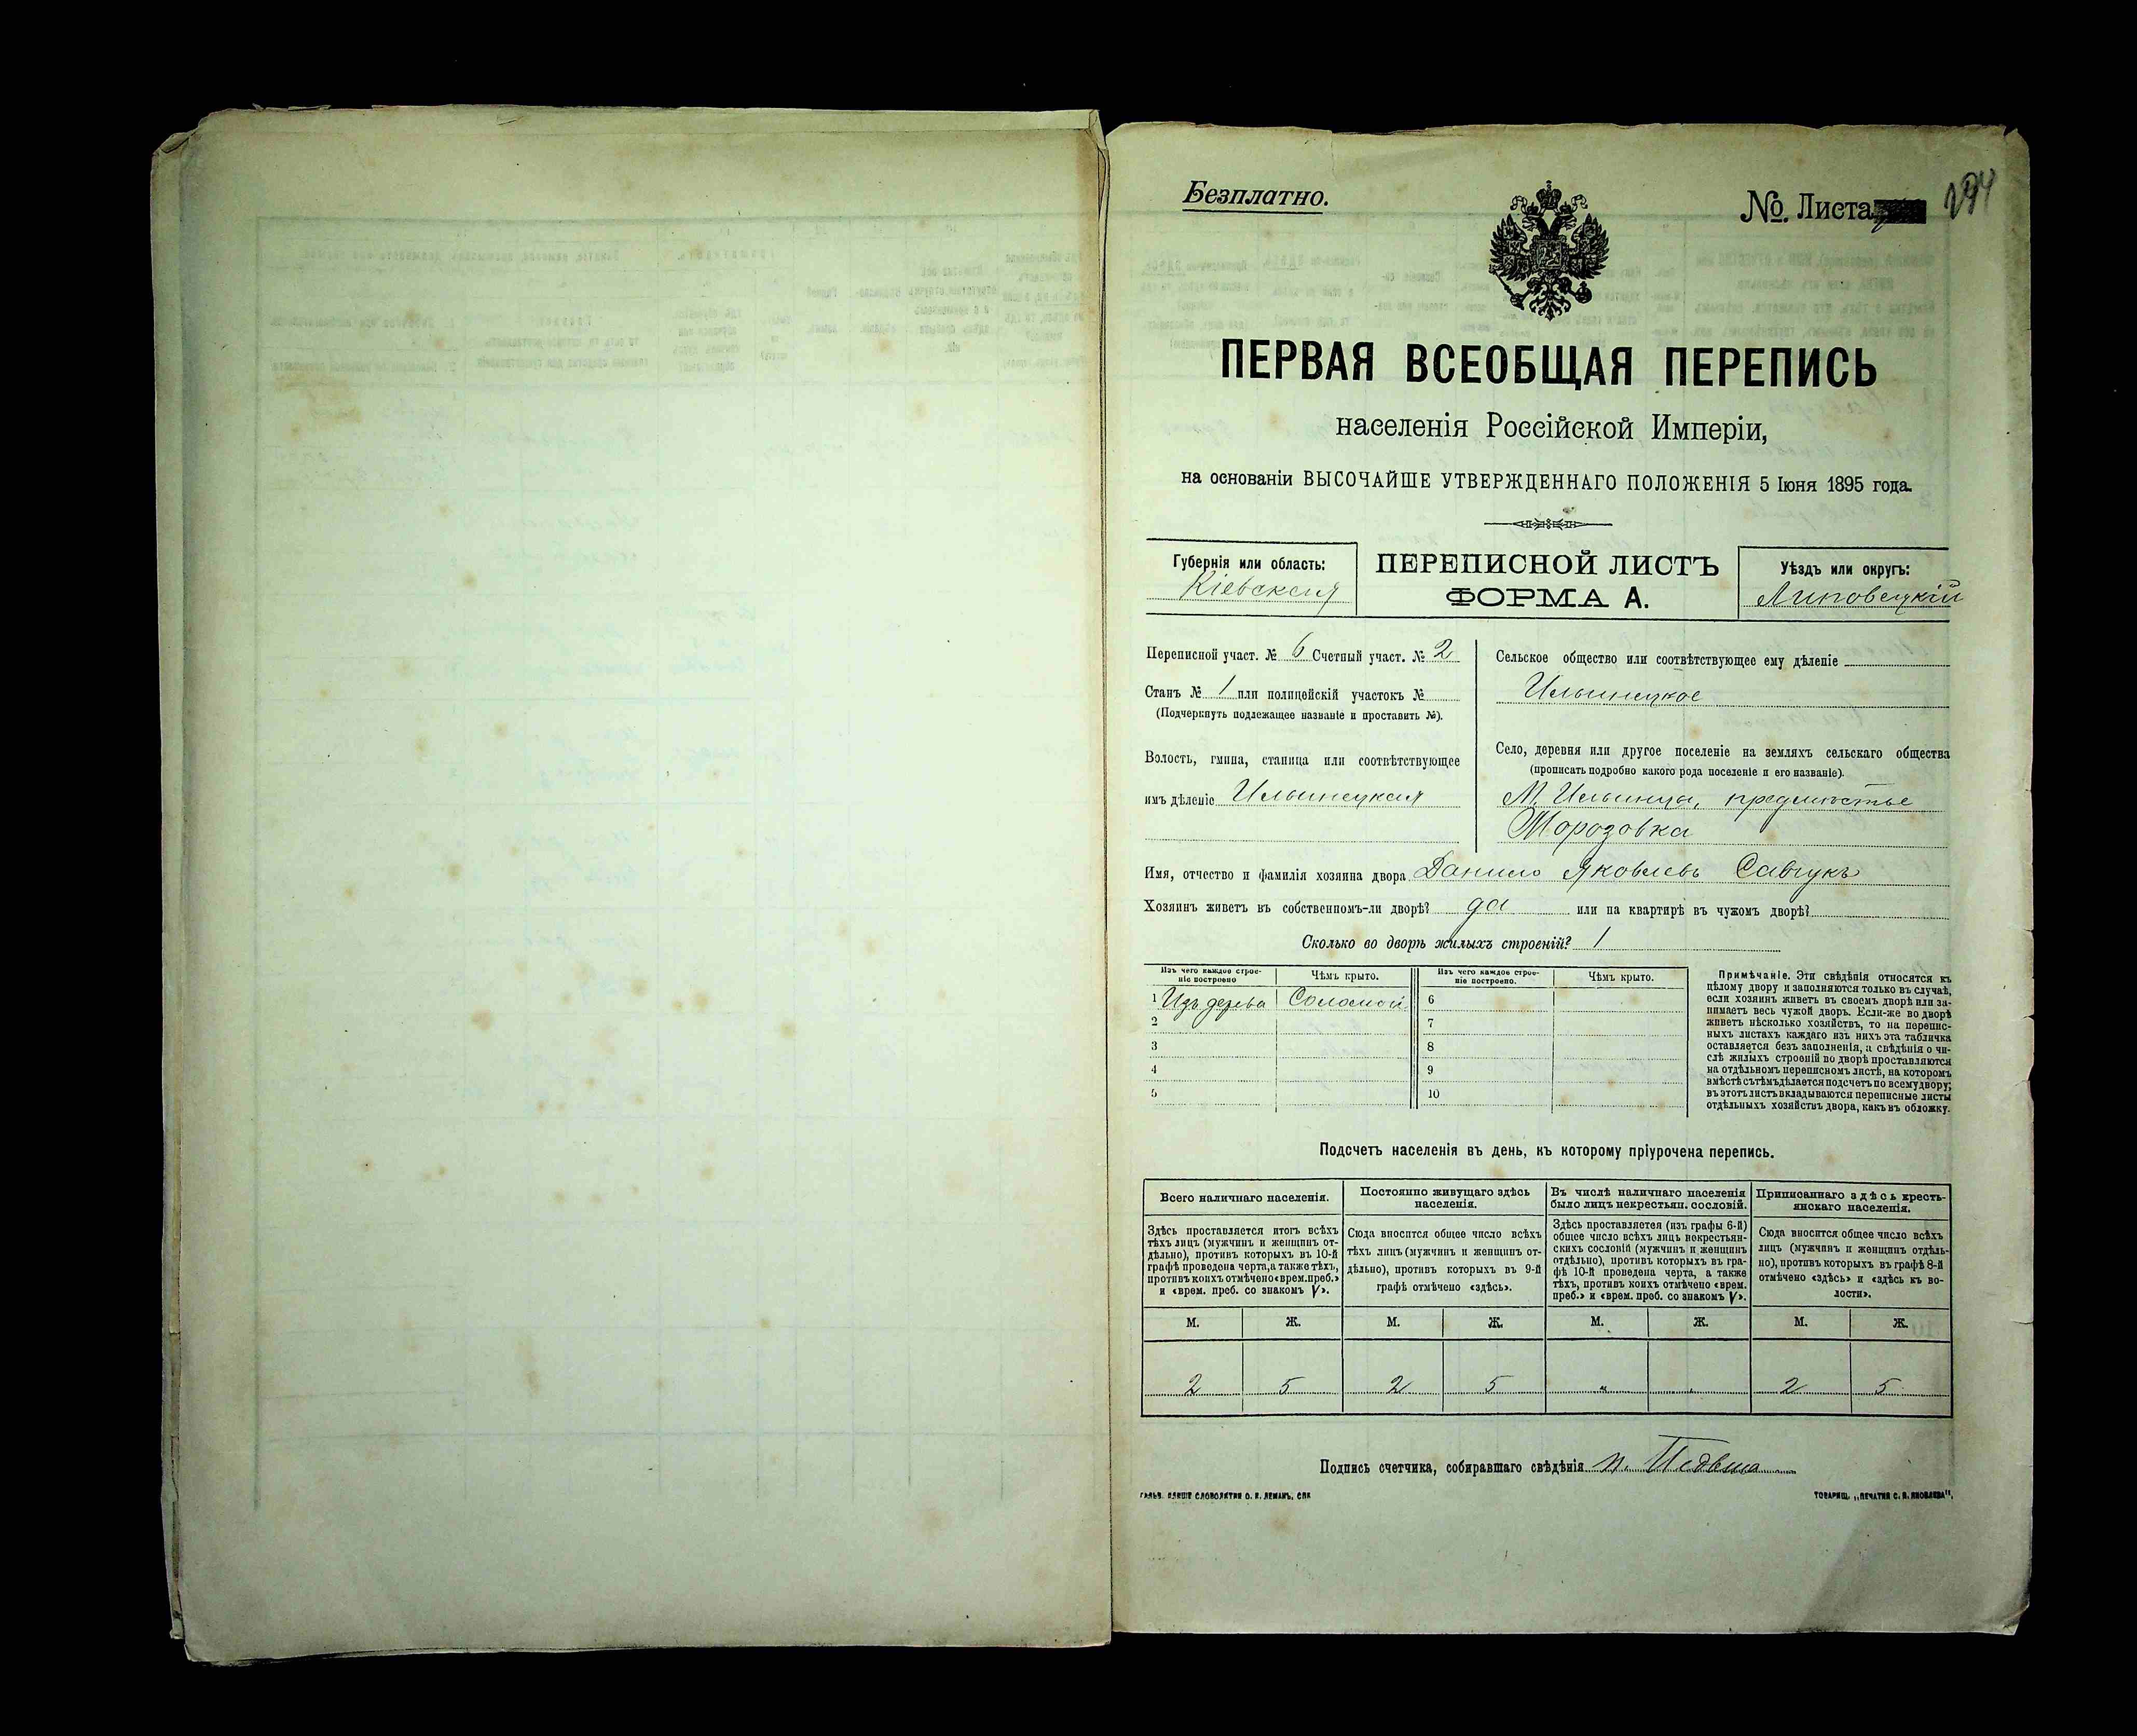 Безплатно.
№. Листа 294
ПЕРВАЯ ВСЕОБЩАЯ ПЕРЕПИСЬ
населенія Россійской Имперіи,
на основаніи ВЫСОЧАЙШЕ УТВЕРЖДЕННАГО ПОЛОЖЕНІЯ 5 Іюня 1895 года.
Губернія или область:
Кіевская
ПЕРЕПИСНОЙ ЛИСТЪ
ФОРМА А.
Уѣздъ или округъ:
Липовецкій
Переписной участ. № 6 Счетный участ. № 2
Станъ № 1 или полицейскій участокъ №
(Подчеркнуть подлежащее названіе и проставить №).
Волость, гмина, станица или соотвѣтствующее
имъ дѣленіе Ильинецкая
Сельское общество или соотвѣтствующее ему дѣленіе
Ильинецкое
Село, деревня или другое поселеніе на земляхъ сельскаго общества
(прописать подробно какого рода поселеніе и его названіе).
М. Ильинцы, предмѣстье
Морозовка
Имя, отчество и фамилія хозяина двора Данило Яковлевъ Савчукъ
Хозяинъ живетъ въ собственномъ-ли дворѣ? да или на квартирѣ въ чужомъ дворѣ?
Сколько во дворѣ жилыхъ строеній? 1
Изъ чего каждое строе-
ніе построено
Чѣмъ крыто.
Изъ чего каждое строе-
ніе построено.
Чѣмъ крыто.
1 Изъ дерева Соломой 6
2 7
3 8
4 9
5 10
Примѣчаніе. Эти свѣдѣнія относятся къ
цѣлому двору и заполняются только въ случаѣ,
если хозяинъ живетъ въ своемъ дворѣ или за-
нимаетъ весь чужой дворъ. Если-же во дворѣ
живетъ нѣсколько хозяйствъ, то на перепис-
ныхъ листахъ каждаго изъ нихъ эта табличка
оставляется безъ заполненія, а свѣдѣнія о чи-
слѣ жилыхъ строеній во дворѣ проставляются
на отдѣльномъ переписномъ листѣ, на которомъ
вмѣстѣ съ тѣмъ дѣлается подсчетъ по всему двору;
въ этотъ листъ вкладываются переписные листы
отдѣльныхъ хозяйствъ двора, какъ въ обложку.
Подсчетъ населенія въ день, къ которому пріурочена перепись.
Всего наличнаго населенія.
Здѣсь проставляется итогъ всѣхъ
тѣхъ лицъ (мужчинъ и женщинъ от-
дѣльно), противъ которыхъ въ 10-й
графѣ проведена черта, а также тѣхъ,
противъ коихъ отмѣчено «врем. преб.»
и «врем. преб. со знакомъ V».
Постоянно живущаго здѣсь
населенія.
Сюда вносится общее число всѣхъ
тѣхъ лицъ (мужчинъ и женщинъ от-
дѣльно), противъ которыхъ въ 9-й
графѣ отмѣчено «здѣсь».
Въ числѣ наличнаго населенія
было лицъ некрестьян. сословій.
Здѣсь проставляется (изъ графы 6-й)
общее число всѣхъ лицъ некрестьян-
скихъ сословій (мужчинъ и женщинъ
отдѣльно), противъ которыхъ въ гра-
фѣ 10-й проведена черта, а также
тѣхъ, противъ коихъ отмѣчено «врем.
преб.» и «врем. преб. со знакомъ V».
Приписаннаго здѣсь кресть-
янскаго населенія.
Сюда вносится общее число всѣхъ
лицъ (мужчинъ и женщинъ отдѣль-
но), противъ которыхъ въ графѣ 8-й
отмѣчено «здѣсь» и «здѣсь къ во-
лости».
М. Ж. М. Ж. М. Ж. М. Ж.
2 5 2 5 " " 2 5
Подпись счетчика, собиравшаго свѣдѣнія
ТОВАРИЩ. „ПЕЧАТНЯ С. П. ЯКОВЛЕВА",